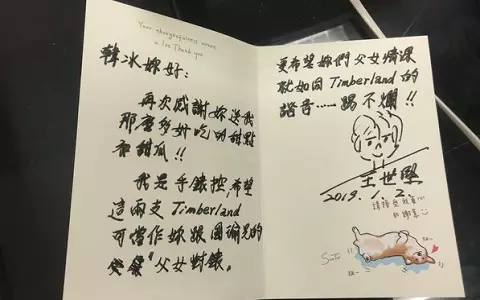 Your thoughtfulness means
a lot. Thank you
韓冰妳好:
再次感謝妳送我
那麼多好吃的甜點
和甜瓜!!
我是手錶控,希望
這兩支Timberland
可當作妳跟國瑜兄的
父女對錶。
更希望妳們父女情深
就如同Timberland的
諧音……踢不爛!!
王世堅
2019.1.2.